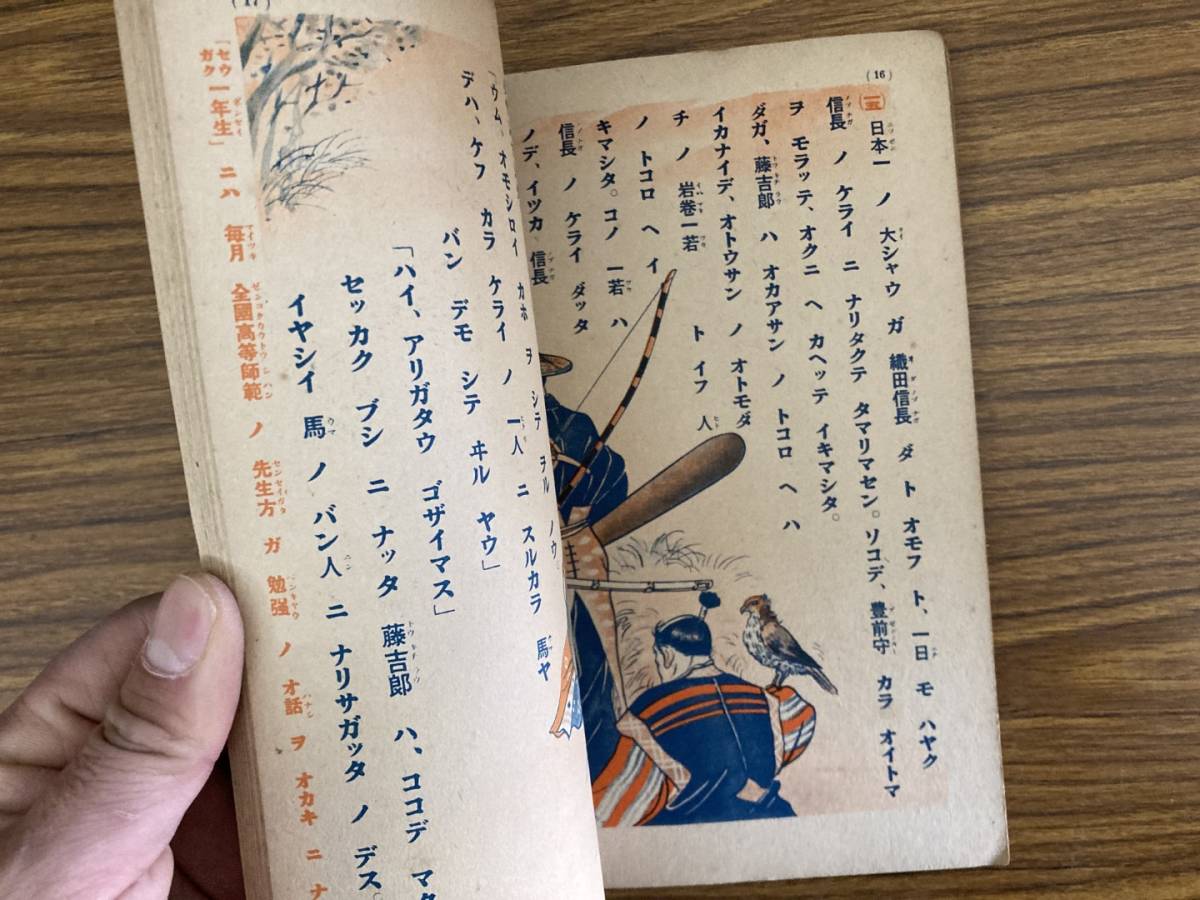 (16)
(一五)
日本一 ノ 大シャウ ガ 織田信長 ダ ト オモフ ト、一日 モ ハヤク
信長 ノ ケライ ニ ナリタクテ タマリマセン。ソコデ、豊前守 カラ オイトマ
ヲ モラッテ、オクニ ヘ カヘッテ イキマシタ。
ダガ、藤吉郎 ハ オカアサン ノ トコロ ヘ ハ
イカナイデ、オトウサン ノ オトモダ
チ ノ 岩巻一若 ト イフ 人
ノ トコロ ヘ イ
キマシタ。コノ 一若 ハ
信長 ノ ケライ ダッタ
ノデ、イツカ 信長
(17)
「ウム、オモシロイ カホ ヲ シテ ヲル ノウ
デハ、ケフ カラ ケライ ノ 一人 ニ スルカラ 馬ヤ
バン デモ シテ ヰル ヤウ」
「ハイ、アリガタウ ゴザイマス」
セッカク ブシ ニ ナッタ 藤吉郎 ハ、ココデ マタ
イヤシイ 馬 ノ バン人 ニ ナリサガッタ ノ デス。
「セウガク一年生」 ニハ 毎月 全國高等師範 ノ 先生方 ガ 勉强 ノ オ話 ヲ オカキ ニ ナ